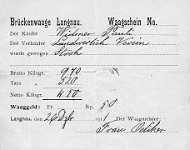 Brückenwaage Langnau. Waagschein No.
Der Käufer
Der Verkäufer Landwirtsch Verein
wurde gewogen Stroh
Brutto Kilogr. 970
Tara 520
Netto Kilogr. 450
Waaggeld: Fr. Rp. 50
Langnau, den 191
Der Waagmeister:
Frau